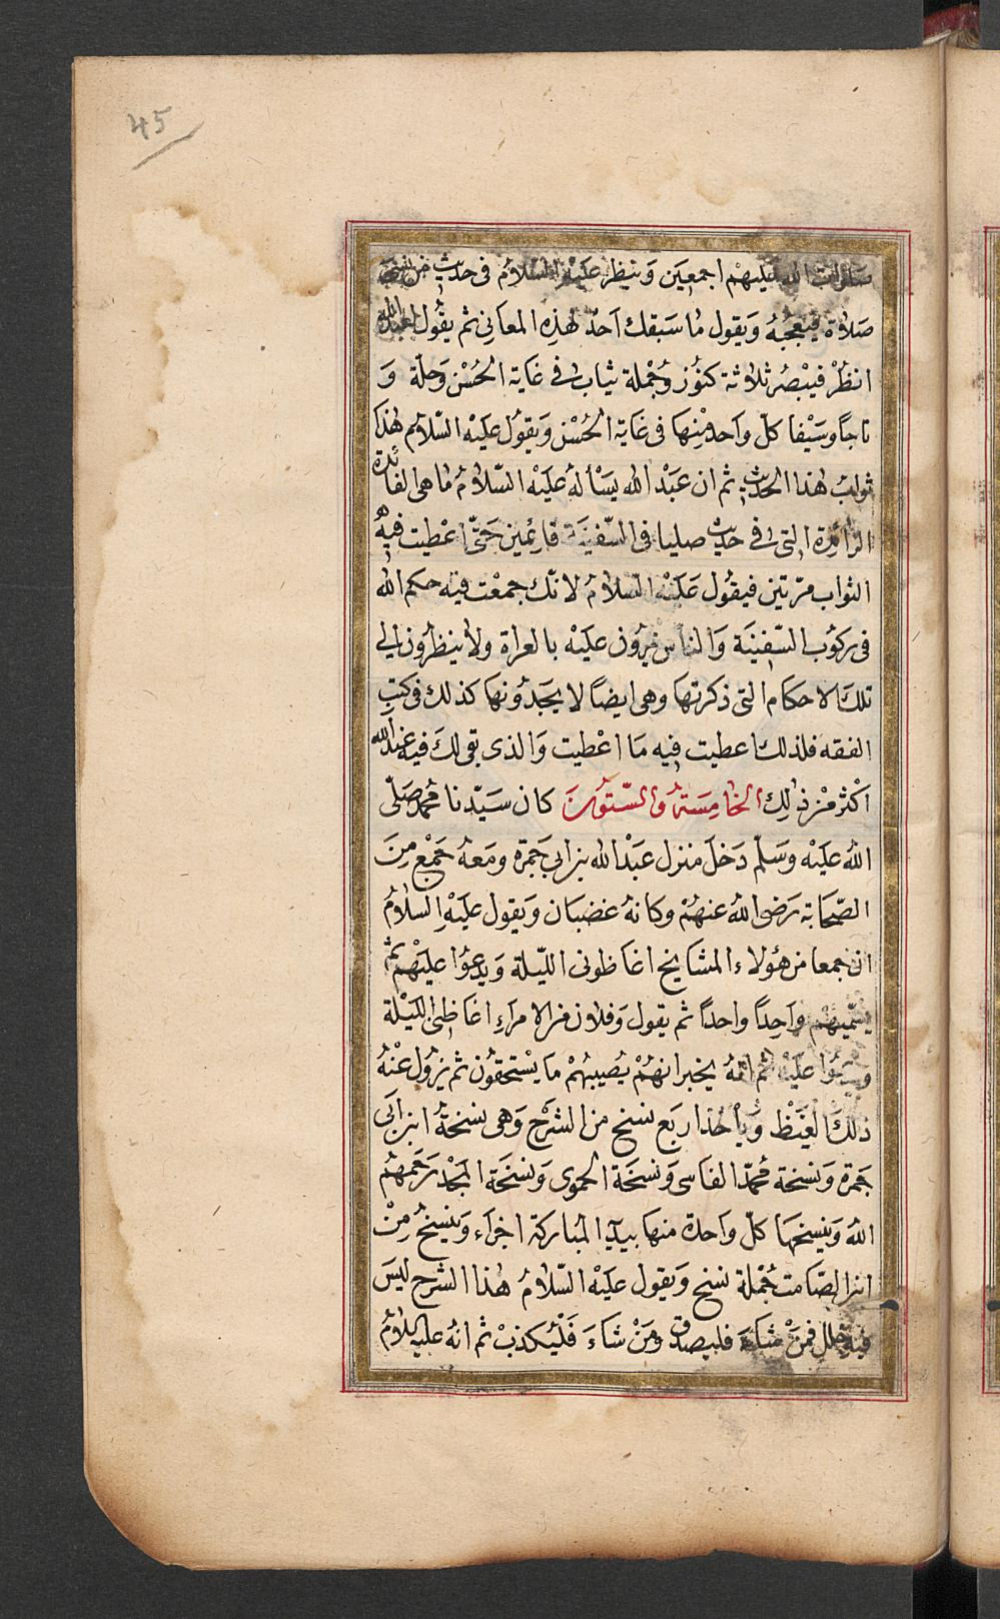 45
صلوات الله عليهم اجمعين وينظر عليه السلام فى حديث من نسخة
صلاة فيعجبه ويقول ما سبقك احد لهذه المعانى ثم يقول لعبد الله
انظر فيبصر ثلاثة كنوز وجملة ثياب فى غاية الحسن وحلة و
تاجا وسيفا كل واحد منها فى غاية الحسن ويقول عليه السلام هذا
ثواب هذا الحديث ثم ان عبد الله يسأله عليه السلام ما هى الفائدة
الزائدة التى فى حديث صليا فى السفينة قائمين حتى اعطيت فيه
الثواب مرتين فيقول عليه السلام لانك جمعت فيه حكم الله
فى ركوب السفينة والناس يمرون عليه بالعراة ولا ينظرون الى
تلك الاحكام التى ذكرتها وهى ايضا لا يجدونها كذلك فى كتب
الفقه فلذلك اعطيت فيه ما اعطيت والذى بقى لك فيه عند الله
اكثر من ذلك الخامسة والستون كان سيدنا محمد صلى
الله عليه وسلم دخل منزل عبد الله بن ابى جمرة ومعه جمع من
الصحابة رضى الله عنهم وكانه غضبان ويقول عليه السلام
ان جمعا من هؤلاء المشايخ اغاظونى الليلة ويدعوا عليهم ثم
يسميهم واحدا واحدا ثم يقول وفلان من الامراء اغاظنى الليلة
ويدعوا عليه ثم انه يخبر انهم يصيبهم ما يستحقون ثم يزول عنه
ذلك الغيظ وياخذ اربع نسخ من الشرح وهى نسخة ابن ابى
جمرة ونسخة محمد الفاسى ونسخة الحموى ونسخة المجد رحمهم
الله وينسخها كل واحدة منها بيده المباركة اجزاء وينسخ من
ابن الصامت جملة نسخ ويقول عليه السلام هذا الشرح ليس
فيه خلل فمن شاء فليصدق ومن شاء فليكذب ثم انه عليه السلام